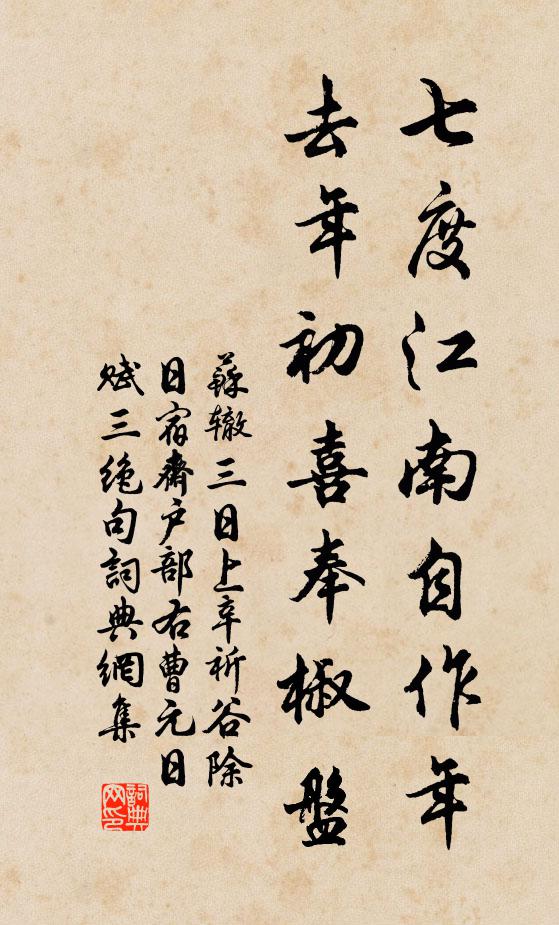 七度江南自作年
去年初喜奉椒盤
蘇辙三日上辛祈谷除
日宿齋户部右曹元日
赋三絶句詞典網集
詞典网印